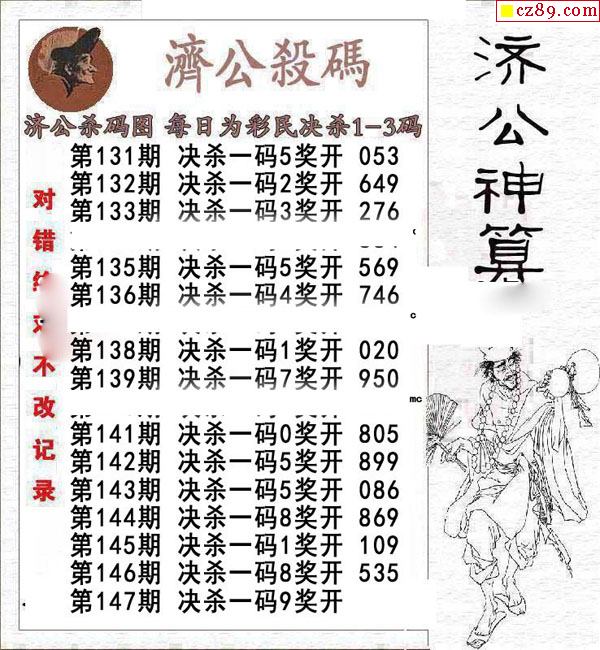 cz89.com
濟公殺碼
济公杀码图 每日为彩民决杀1-3码
第131期 决杀一码5奖开 053
第132期 决杀一码2奖开 649
第133期 决杀一码3奖开 276
第135期 决杀一码5奖开 569
第136期 决杀一码4奖开 746
第138期 决杀一码1奖开 020
第139期 决杀一码7奖开 950
第141期 决杀一码0奖开 805
第142期 决杀一码5奖开 899
第143期 决杀一码5奖开 086
第144期 决杀一码8奖开 869
第145期 决杀一码1奖开 109
第146期 决杀一码8奖开 535
第147期 决杀一码9奖开
对错
不改记录
济公神算
c
mc